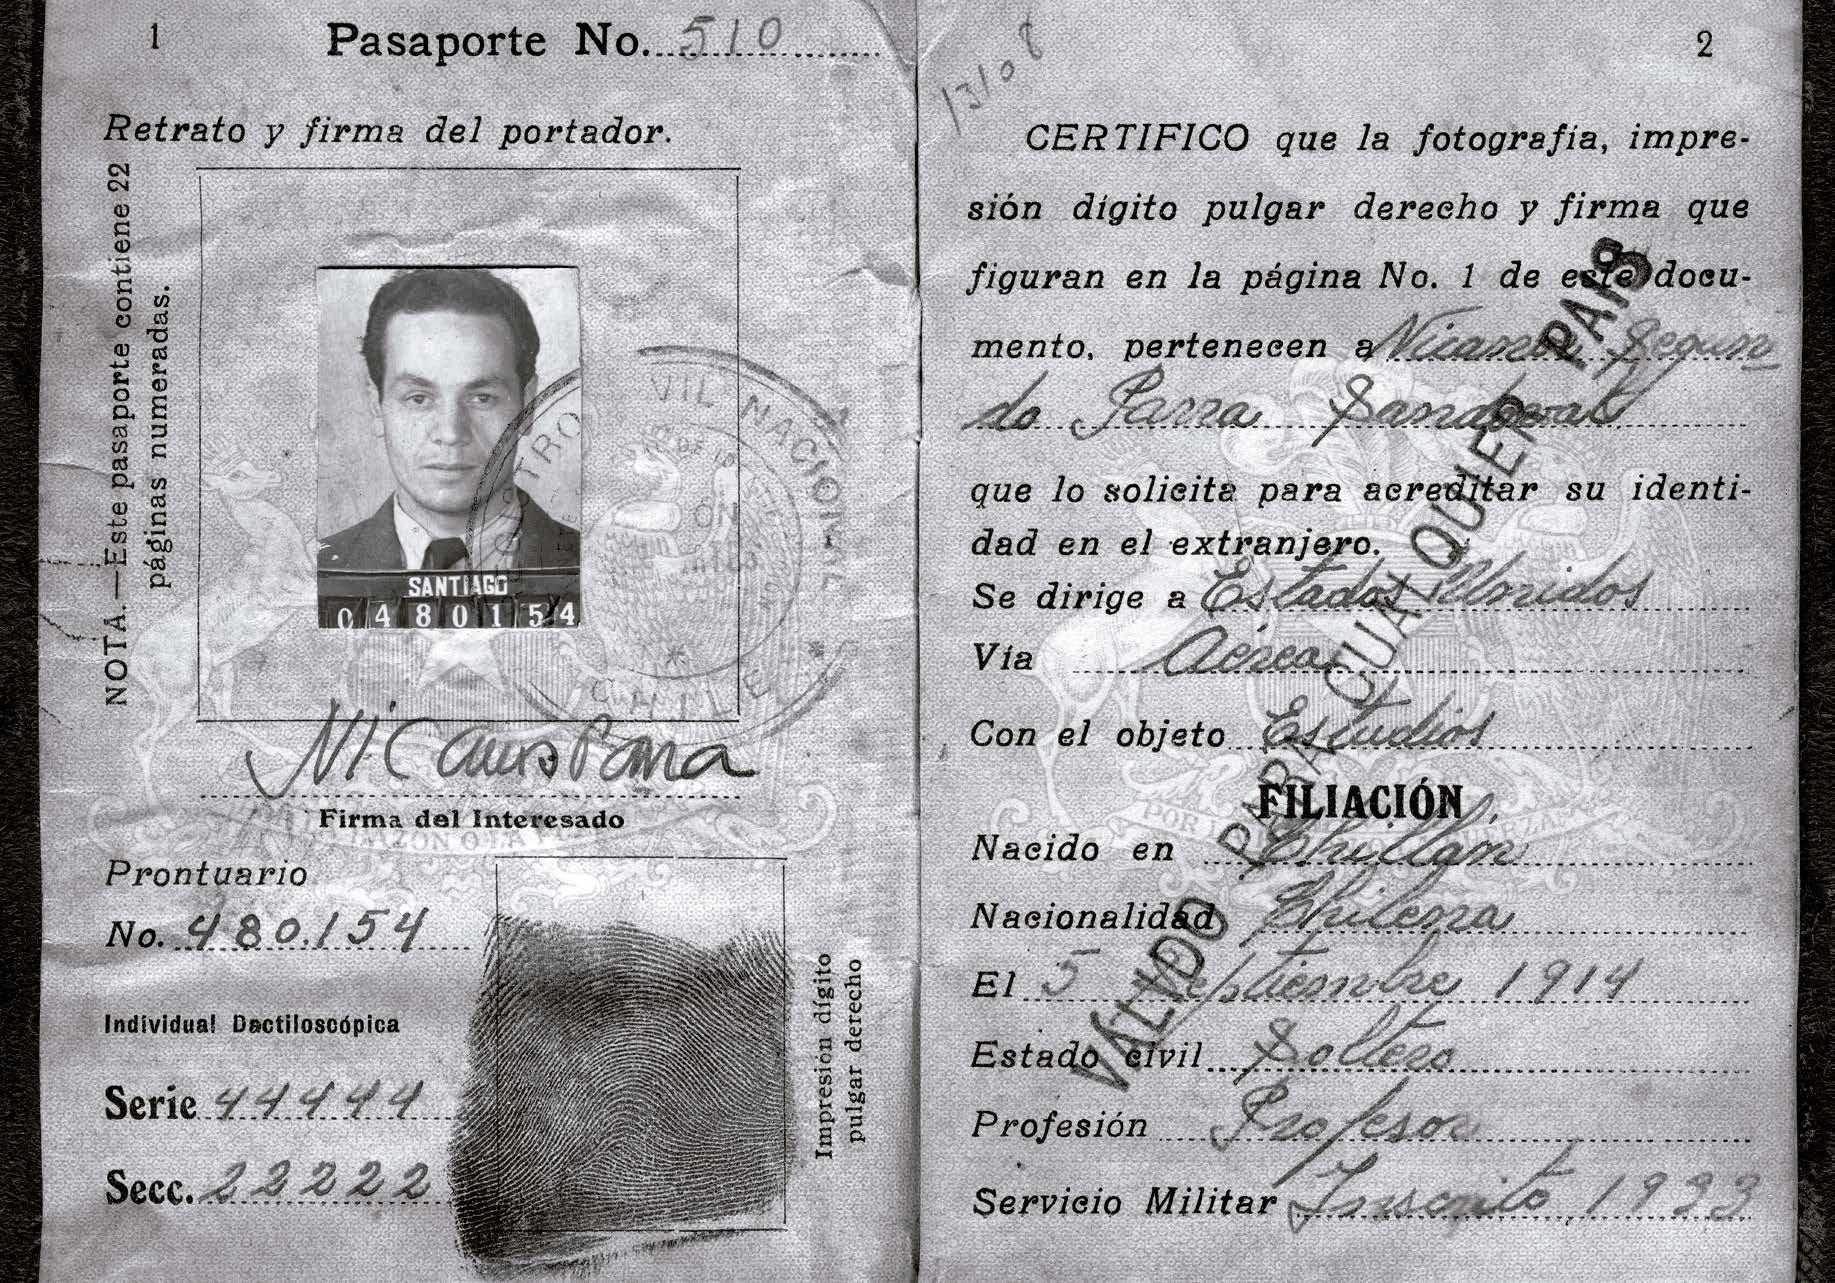 1
Pasaporte No. 510
Retrato y firma del portador.
NOTA.—Este pasaporte contiene 22
páginas numeradas.
REGISTRO CIVIL NACIONAL
CHILE
SANTIAGO
0480154
Nicanor Parra
Firma del Interesado
Prontuario
No. 480.154
Individual Dactiloscópica
Serie 44444
Secc. 22222
Impresión dígito
pulgar derecho
2
CERTIFICO que la fotografía, impre-
sión dígito pulgar derecho y firma que
figuran en la página No. 1 de este docu-
mento, pertenecen a Nicanor Segun
do Parra Sandoval
que lo solicita para acreditar su identi-
dad en el extranjero.
Se dirige a Estados Unidos
Vía Aérea
Con el objeto Estudios
FILIACIÓN
Nacido en Chillán
Nacionalidad Chilena
El 5 Septiembre 1914
Estado civil Soltero
Profesión Profesor
Servicio Militar Inscrito 1933
VÁLIDO PARA CUALQUIER PAIS